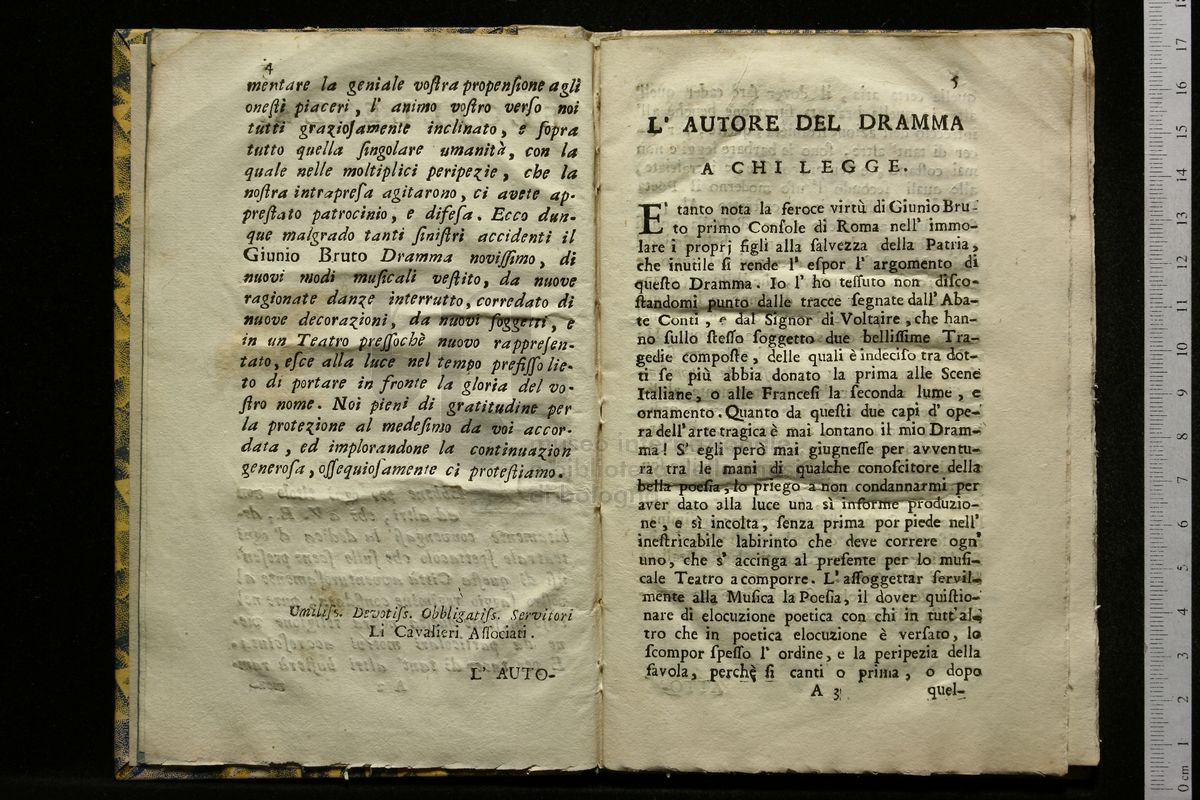 4
mentare la geniale voſtra propenſione agli
oneſti piaceri, l' animo voſtro verſo noi
tutti grazioſamente inclinato, e ſopra
tutto quella ſingolare umanità, con la
quale nelle moltiplici peripezie, che la
noſtra intrapreſa agitarono, ci avete ap-
preſtato patrocinio, e difeſa. Ecco dun-
que malgrado tanti ſiniſtri accidenti il
Giunio Bruto Dramma noviſſimo, di
nuovi modi muſicali veſtito, da nuove
ragionate danze interrutto, corredato di
nuove decorazioni, da nuovi ſoggetti, e
in un Teatro preſſochè nuovo rappreſen-
tato, eſce alla luce nel tempo prefiſſo lie-
to di portare in fronte la gloria del vo-
ſtro nome. Noi pieni di gratitudine per
la protezione al medeſimo da voi accor-
data, ed implorandone la continuazion
generoſa, oſſequioſamente ci proteſtiamo.
Umiliſs. Devotiſs. Obbligatiſs. Servitori
Li Cavalieri Aſſociati.
L' AUTO-
5
L' AUTORE DEL DRAMMA
A CHI LEGGE.
E' tanto nota la feroce virtù di Giunio Bru-
to primo Conſole di Roma nell' immo-
lare i proprj figli alla ſalvezza della Patria,
che inutile ſi rende l' eſpor l' argomento di
queſto Dramma. Io l' ho teſſuto non diſco-
ſtandomi punto dalle tracce ſegnate dall' Aba-
te Conti, e dal Signor di Voltaire, che han-
no ſullo ſteſſo ſoggetto due belliſſime Tra-
gedie compoſte, delle quali è indeciſo tra dot-
ti ſe più abbia donato la prima alle Scene
Italiane, o alle Franceſi la ſeconda lume, e
ornamento. Quanto da queſti due capi d' ope-
ra dell' arte tragica è mai lontano il mio Dram-
ma! S' egli però mai giugneſſe per avventu-
ra tra le mani di qualche conoſcitore della
bella poeſia, lo priego a non condannarmi per
aver dato alla luce una sì informe produzio-
ne, e sì incolta, ſenza prima por piede nell'
ineſtricabile labirinto che deve correre ogn'
uno, che s' accinga al preſente per lo muſi-
cale Teatro a comporre. L' aſſoggettar ſervil-
mente alla Muſica la Poeſia, il dover quiſtio-
nare di elocuzione poetica con chi in tutt' al-
tro che in poetica elocuzione è verſato, lo
ſcompor ſpeſſo l' ordine, e la peripezia della
favola, perchè ſi canti o prima, o dopo
A 3
quel-